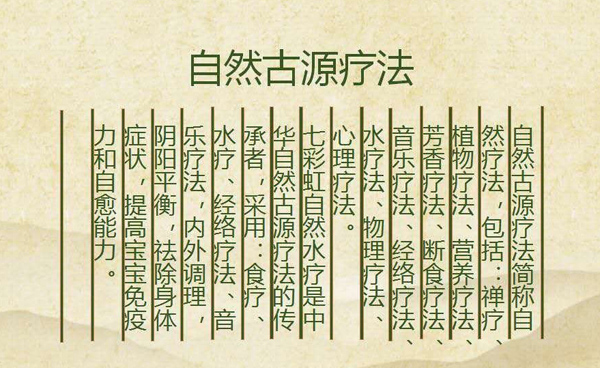 自然古源疗法
自然古源疗法简称自
然疗法，包括：禅疗、
植物疗法、营养疗法、
芳香疗法、断食疗法、
音乐疗法、经络疗法、
水疗法、物理疗法、
心理疗法。
七彩虹自然水疗是中
华自然古源疗法的传
承者，采用：食疗、
水疗、经络疗法、音
乐疗法，内外调理，
阴阳平衡，祛除身体
症状，提高宝宝免疫
力和自愈能力。